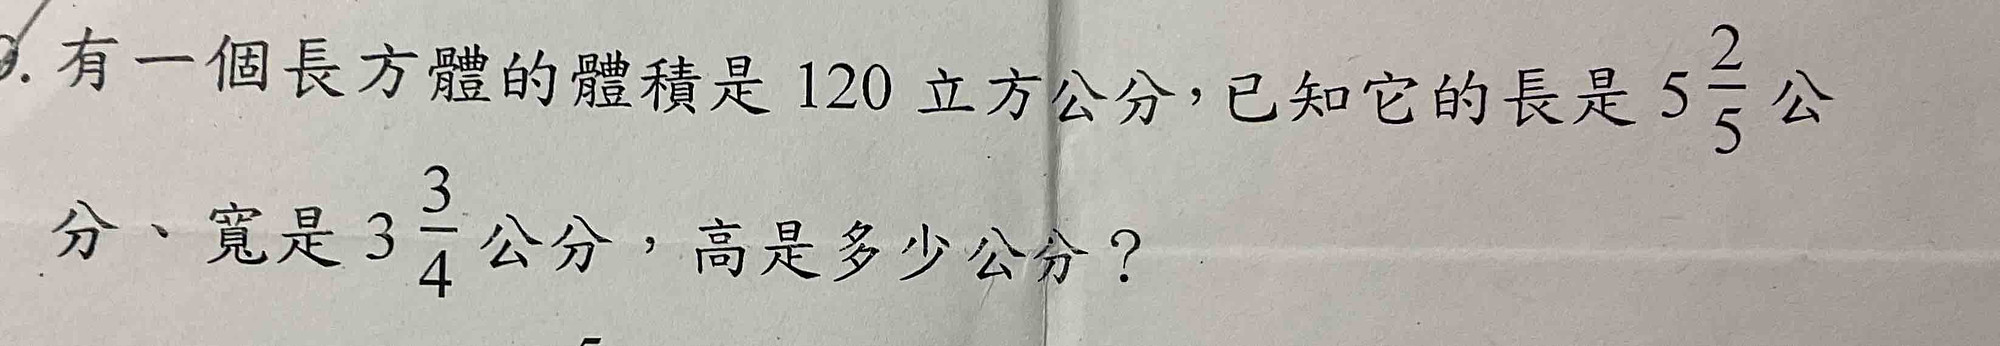 有一個長方體的體積是 120 立方公分，已知它的長是 5 2/5 公
分、寬是 3 3/4 公分，高是多少公分？